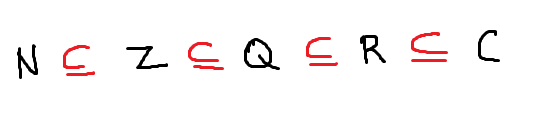 N ⊆ Z ⊆ Q ⊆ R ⊆ C